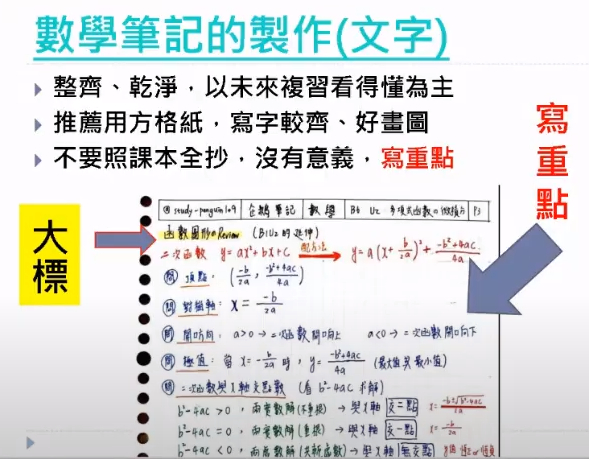 數學筆記的製作(文字)
整齊、乾淨，以未來複習看得懂為主
推薦用方格紙，寫字較齊、好畫圖
不要照課本全抄，沒有意義，寫重點
寫重點
大標
@study-penguin109 企鵝筆記 數學 B6 U2 多項式函數の微積分 P3
函數圖形のReview (B1U2的延伸)
二次函數 y=ax²+bx+c 配方法 → y=a(x+b/2a)²+(-b²+4ac)/4a
頂點: (-b/2a, (-b²+4ac)/4a)
對稱軸: x=-b/2a
開口方向: a>0 → 二次函數開口向上 a<0 → 二次函數開口向下
極值: 當 x=-b/2a 時, y=(-b²+4ac)/4a (最大值與最小值)
二次函數與X軸交點數 (看 b²-4ac 求解)
b²-4ac>0, 兩實數解(不重根) → 與X軸交二點 x=(-b±√(b²-4ac))/2a
b²-4ac=0, 兩實數解(重根) → 與X軸交一點 x=-b/2a
b²-4ac<0, 兩虛數解(共軛虛數) → 與X軸無交點